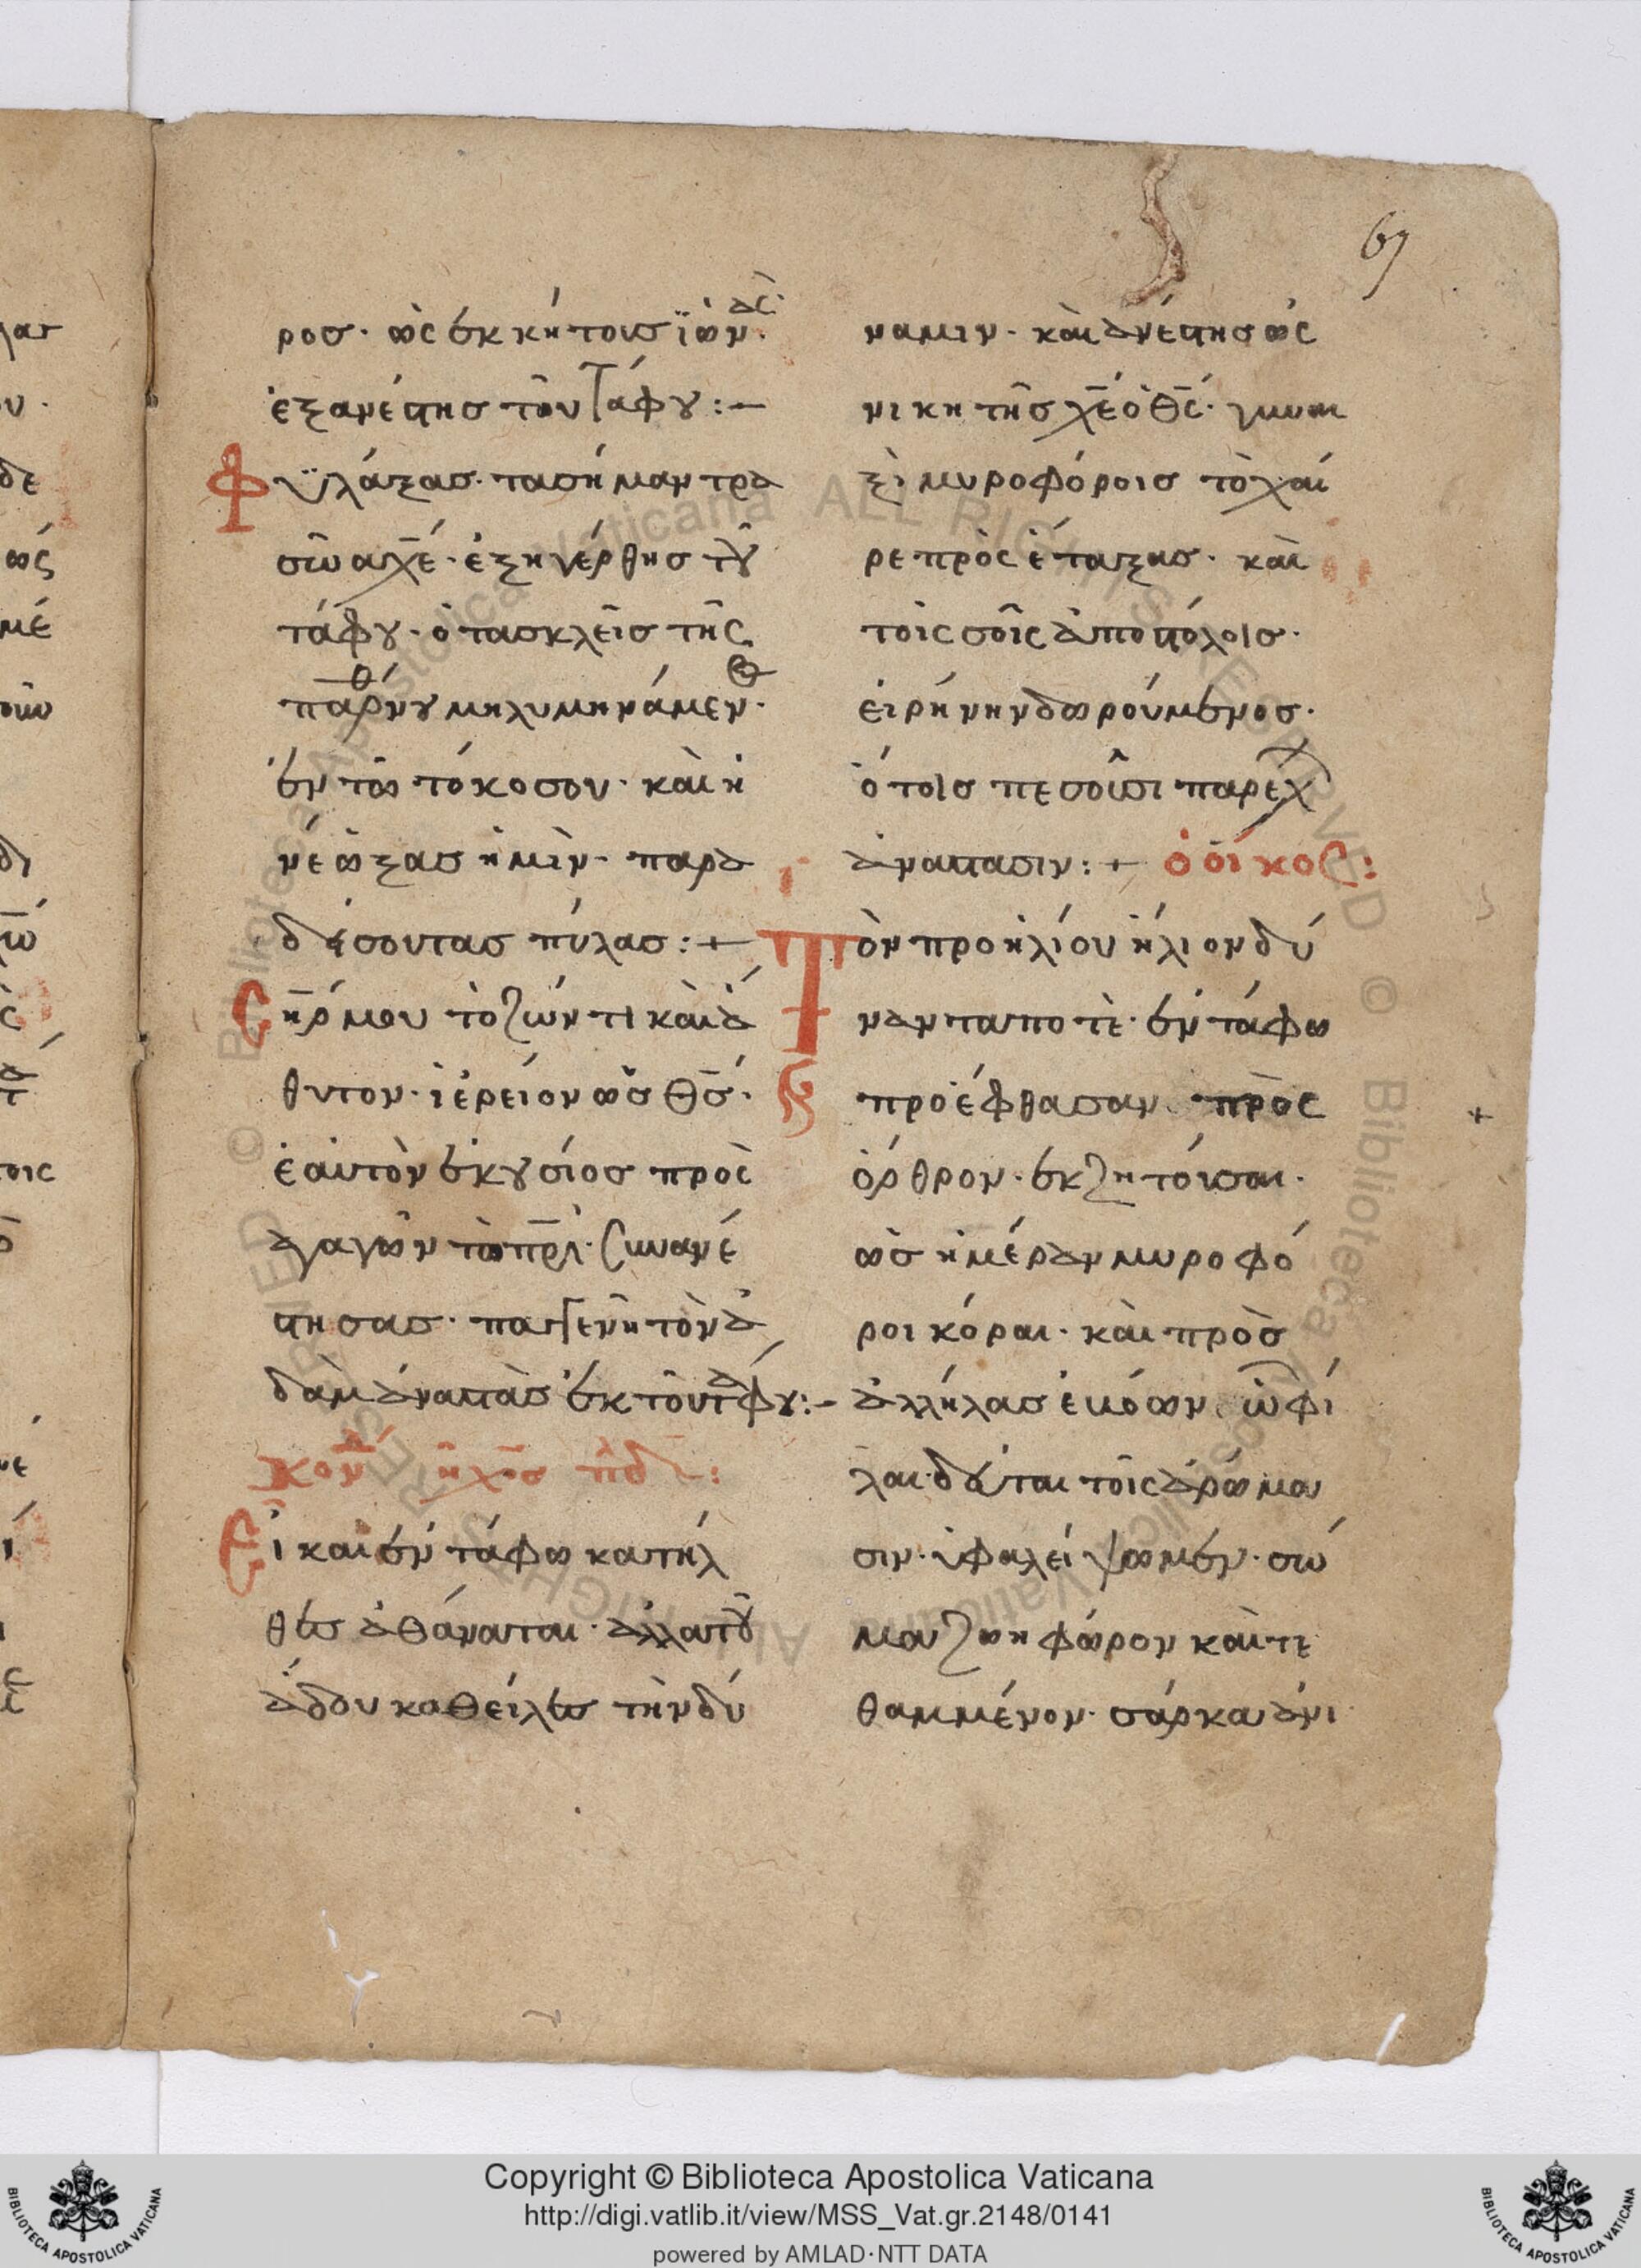 67
ρος· ὡς ἐκ κήτους ϊὼν ας·
ἐξανέστης τοῦ Τάφου:–
Φϋλάξας· τα σήμαντρα
σῶα χ̅ε̅· ἐξηγέρθης τοῦ
τάφου· ὁ τας κλεῖς τῆς
παρθνου μη λυμηνάμεν·
ἐν τῶ τόκο σου· καὶ ἠ
νέωξας ἡμὶν· παρα
δείσου τας πύλας:+
Cηρ μου τὸ ζών τι καὶ ἀ
θυτον· ἱέρείον ὡς θ̅ς̅·
ἑαυτὸν ἐκουσίος προς
αγαγὼν τῶ π̅ρ̅ι̅· συνανέ
στησας· παγγενῆ τὸν ἀ
δὰμ ἀναστὰς ἐκ τοῦ τάφου:–
κον ἦχος πδ:
Εἰ καὶ ἐν τάφω κατήλ
θες ἀθάναται· ἀλλα τοῦ
άδου καθείλες τὴν δύ
ναμιν· καὶ ἀνέστης ὡς
νικητῆς χ̅ε̅ ὁ θ̅ς̅· γυναι
ξὶ μυροφόροις τὸ χαί
ρε προς έταξας· καὶ
τοὶς σοῖς ἀποστόλοις·
εἰρήνην δωρούμενος·
ὁ τοις πεσοῦσι παρέχ
ἀναστασιν:+ ὁ οἶκος:
Τὸν προ ηλίου ἥλιον δύ
ναντα ποτὲ· ἐν τάφω
προέφθασαν πρὸς
όρθρον· ἐκζητόυσαι·
ὡς ἡμέραν μυροφό
ροι κόραι· καὶ πρὸς
ἀλλήλας ἐκόων ὦ φί
λαι· δεύται τοῖς ἀρώμα
σιν· ὑφαλείψωμεν· σώ
μα ζωηφώρον καὶ τε
θαμμένον· σάρκα ἀνι
+
Copyright © Biblioteca Apostolica Vaticana
http://digi.vatlib.it/view/MSS_Vat.gr.2148/0141
powered by AMLAD·NTT DATA
BIBLIOTECA APOSTOLICA VATICANA
BIBLIOTECA APOSTOLICA VATICANA